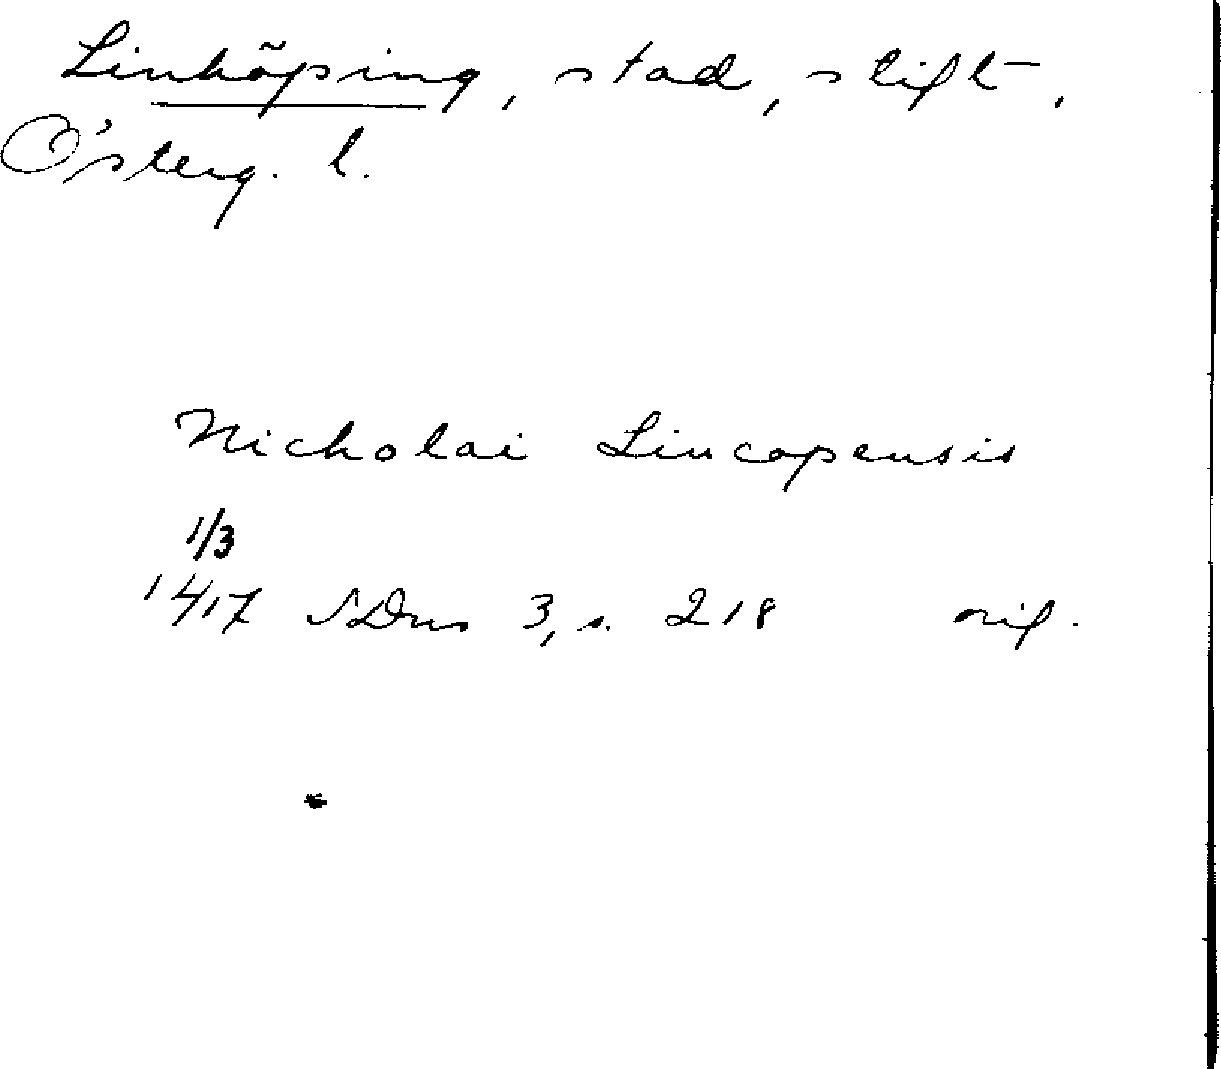 Linköping, stad, stift,
Österg. l.
Nicholai Lincopensis
1/3
1417 SDns 3, s. 218 orig.